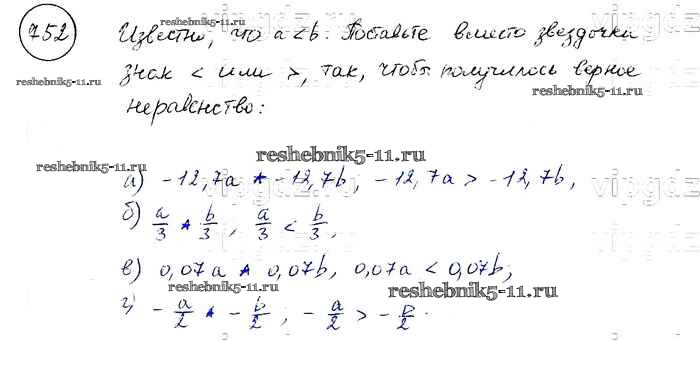 752 Известно, что a < b. Поставьте вместо звездочки
знак < или >, так, чтобы получилось верное
неравенство:
reshebnik5-11.ru
reshebnik5-11.ru
reshebnik5-11.ru
reshebnik5-11.ru
reshebnik5-11.ru
vipgdz
а) -12,7a * -12,7b, -12,7a > -12,7b,
б) a/3 * b/3, a/3 < b/3,
в) 0,07a * 0,07b, 0,07a < 0,07b,
г) -a/2 * -b/2, -a/2 > -b/2.
reshebnik5-11.ru
reshebnik5-11.ru